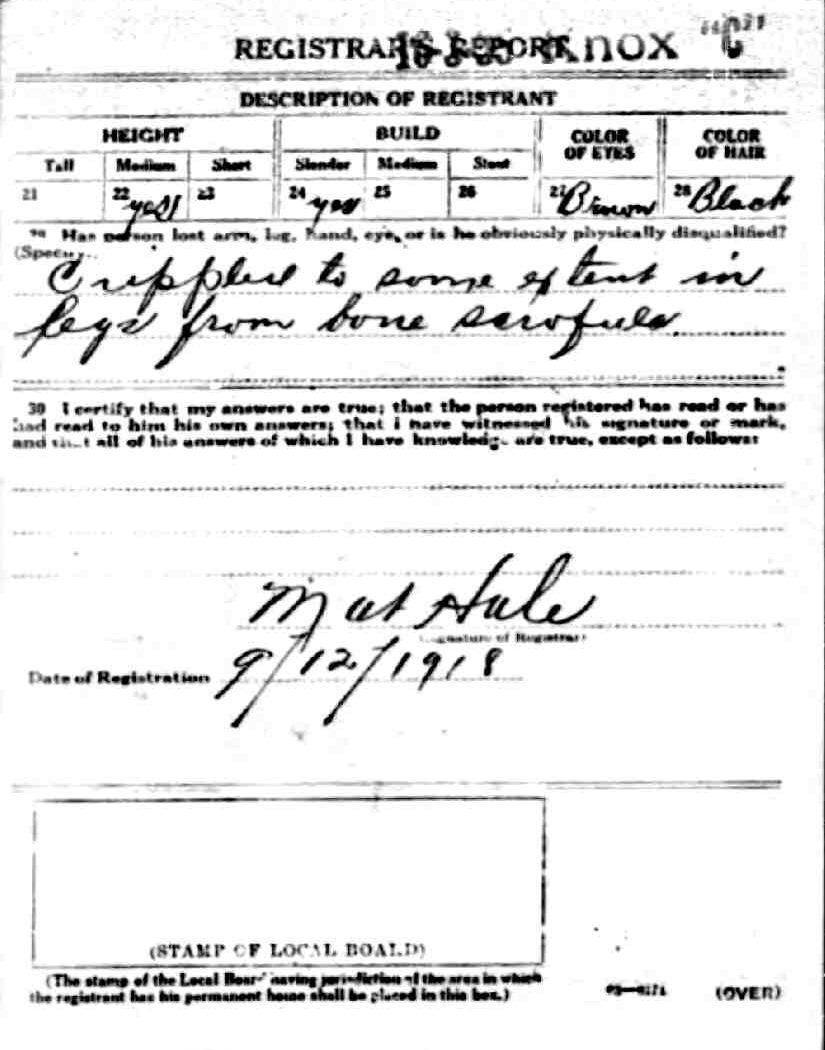 REGISTRAR'S REPORT Knox "C"
DESCRIPTION OF REGISTRANT
HEIGHT BUILD COLOR OF EYES COLOR OF HAIR
Tall Medium Short Slender Medium Stout
21 22 yes 23 24 yes 25 26 27 Brown 28 Black
29 Has person lost arm, leg, hand, eye, or is he obviously physically disqualified?
(Specify).
Crippled to some extent in
legs from bone scrofula
30 I certify that my answers are true; that the person registered has read or has
had read to him his own answers; that I have witnessed his signature or mark,
and that all of his answers of which I have knowledge are true, except as follows:
Mat Hale
(Signature of Registrar)
Date of Registration 9/12/1918
(STAMP OF LOCAL BOARD)
(The stamp of the Local Board having jurisdiction of the area in which
the registrant has his permanent home shall be placed in this box.)
(OVER)